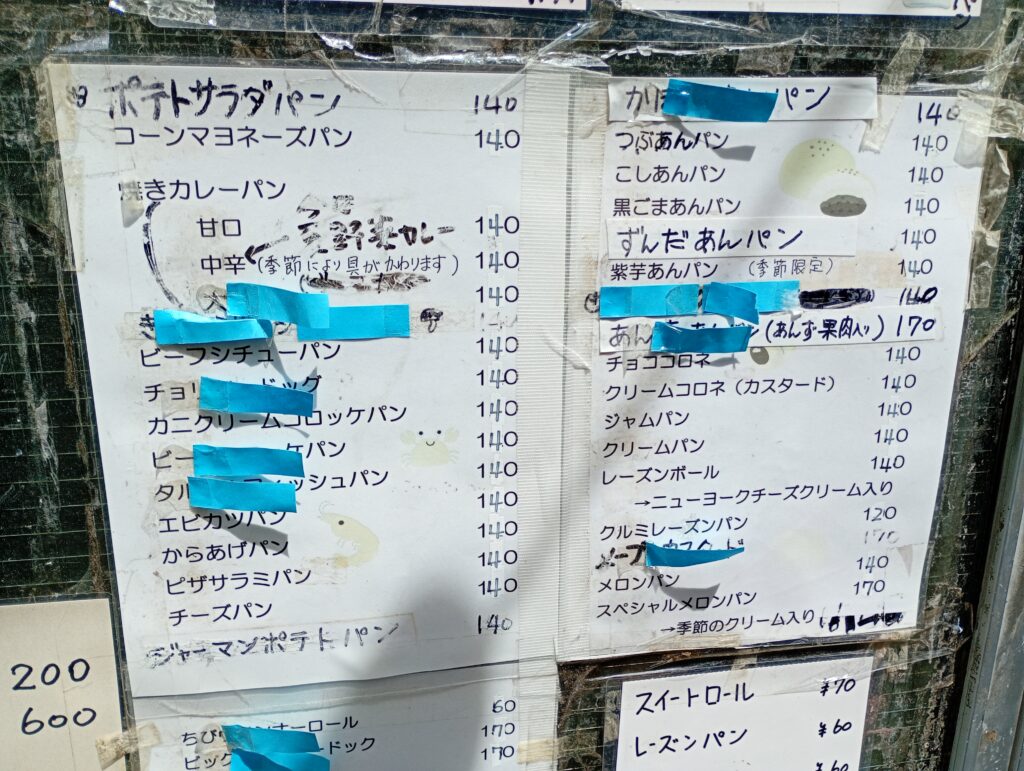 ポテトサラダパン 140
コーンマヨネーズパン 140
焼きカレーパン
甘口 140
夏野菜カレー
中辛 (季節により具がかわります) 140
140
140
ビーフシチューパン 140
チョリ ドッグ 140
カニクリームコロッケパン 140
ビー ケパン 140
タル ィッシュパン 140
エビカツパン 140
からあげパン 140
ピザサラミパン 140
チーズパン 140
ジャーマンポテトパン 140
60
ちび ナーロール 170
ビッグ ードック 170
200
600
かぼ パン 140
つぶあんパン 140
こしあんパン 140
黒ごまあんパン 140
ずんだあんパン 140
紫芋あんパン (季節限定) 140
140
あん (あんず果肉入り) 170
チョココロネ 140
クリームコロネ(カスタード) 140
ジャムパン 140
クリームパン 140
レーズンボール 140
→ニューヨークチーズクリーム入り
クルミレーズンパン 120
メープ ード 170
メロンパン 140
スペシャルメロンパン 170
→季節のクリーム入り
スイートロール ¥70
レーズンパン ¥60
¥60